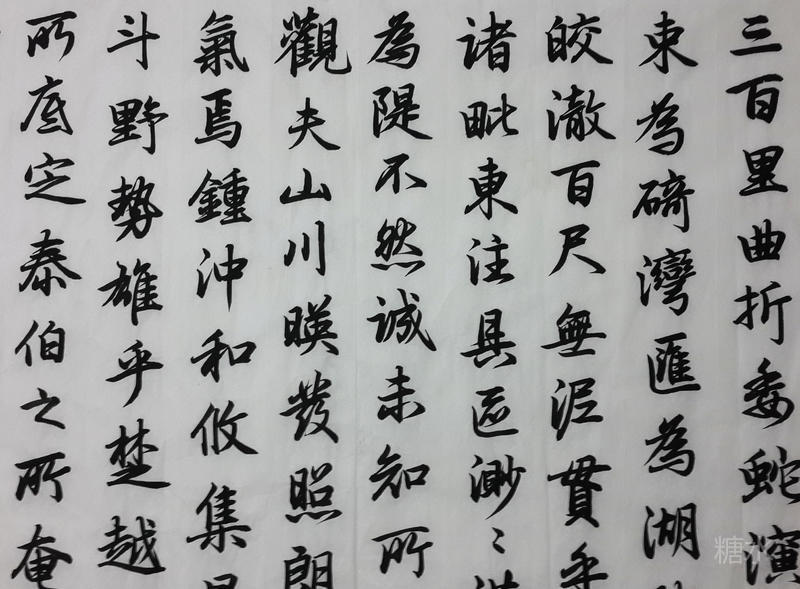 三百里曲折委蛇演
東為碕灣匯為湖
皎澈百尺無泥貫乎
诸毗東注具區渺〻
為隄不然诚未知所
觀夫山川暎發照朗
氣焉鍾沖和攸集
斗野勢雄乎楚越
所底定泰伯之所奄
糖水